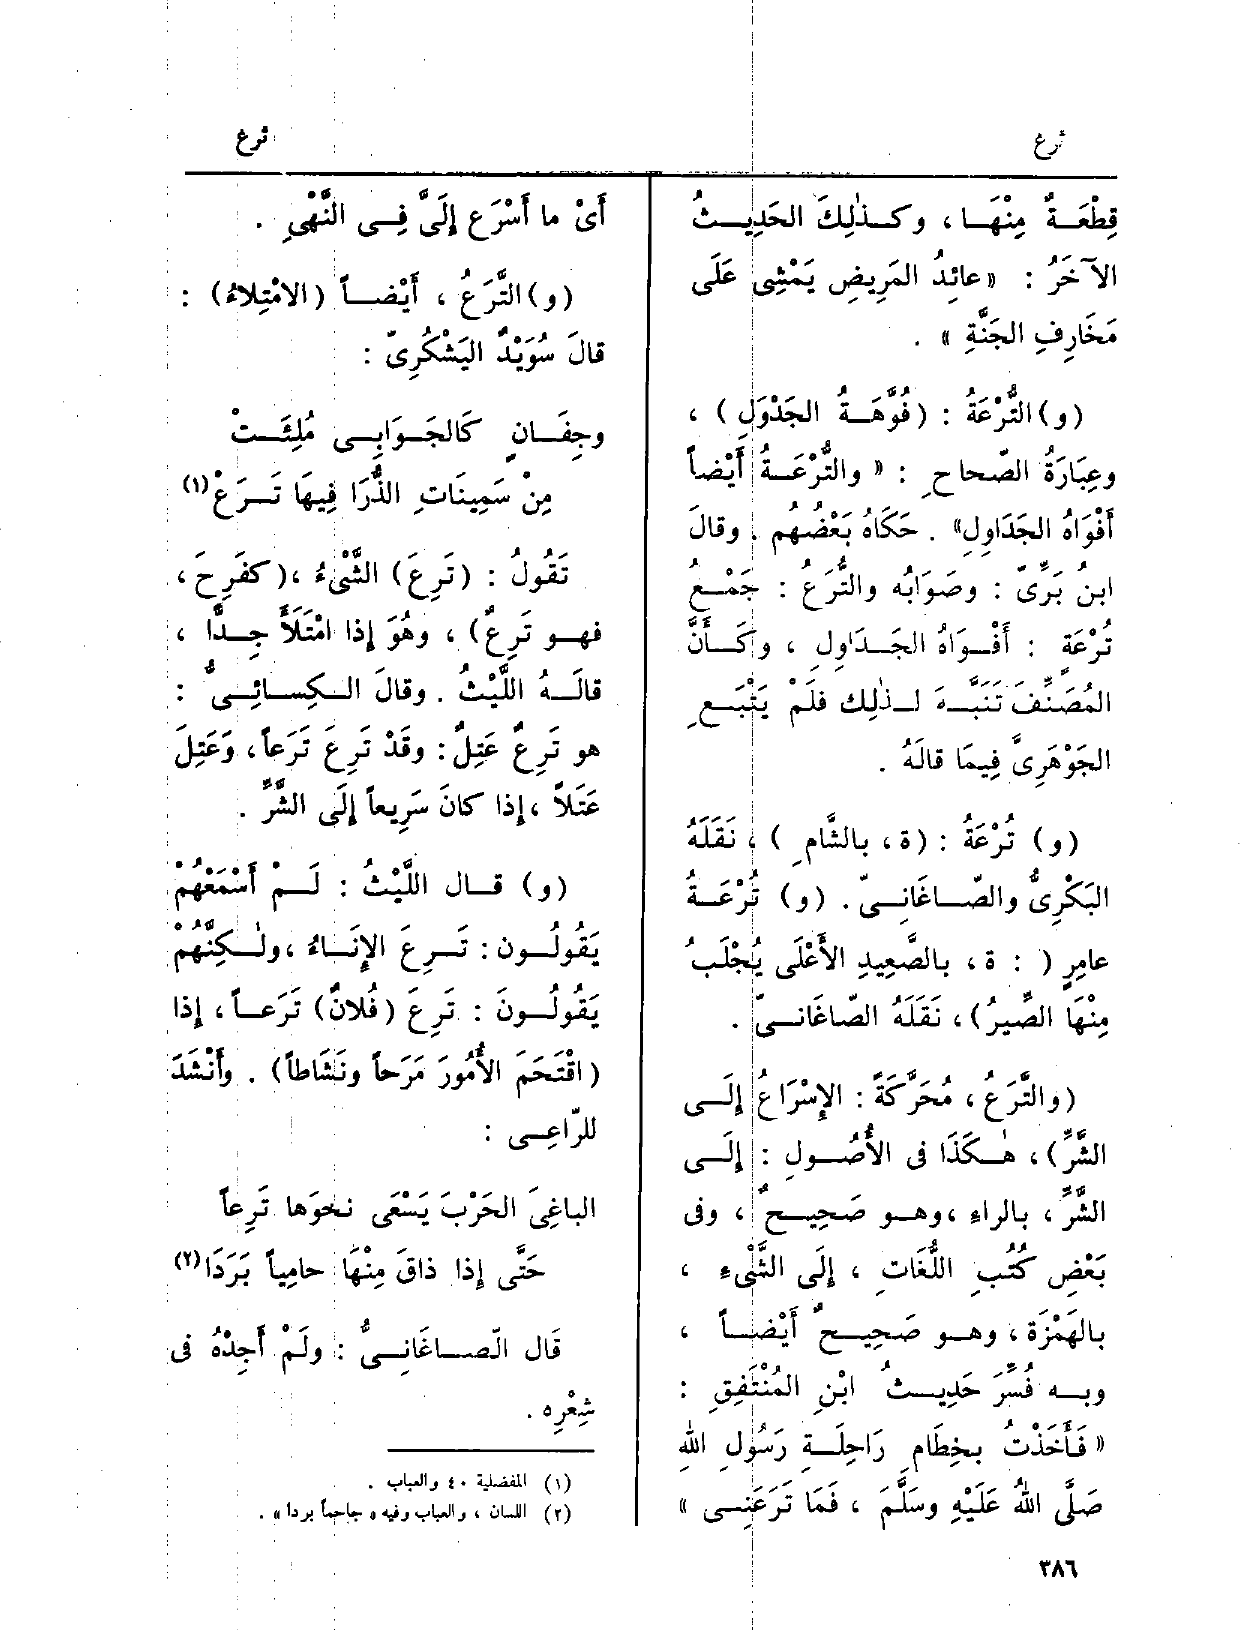 ترع
ترع
قِطْعَـــةٌ مِنْهَــا ، وكــذٰلِكَ الحَدِيــثُ
الآخَرُ : «عائِدُ المَرِيضِ يَمْشِى عَلَى
مَخَارِفِ الجَنَّةِ » .
(و)التُّرْعَةُ : (فُوَّهَــةُ الجَدْوَلِ) ،
وعِبَارَةُ الصّحاحِ : « والتُّرْعَــةُ أَيْضاً
أَفْوَاهُ الجَدَاوِلِ» . حَكَاهُ بَعْضُهُم . وقالَ
ابنُ بَرِّىّ : وصَوَابُه والتُّرَعُ : جَمْــعُ
تُرْعَةٍ : أَفْــوَاهُ الجَــدَاوِلِ ، وكَــأَنَّ
المُصَنِّفَ تَنَبَّــهَ لــذٰلِك فلَمْ يَتْبَــعِ
الجَوْهَرِىَّ فِيمَا قالَهُ .
(و) تُرْعَةُ : (ة ، بالشَّامِ ) ، نَقَلَهُ
البَكْرِىُّ والصّــاغَانِــىّ . (و) تُرْعَــةُ
عامِرٍ ( : ة ، بالصَّعِيدِ الأَعْلَى يُجْلَبُ
مِنْهَا الصِّيرُ) ، نَقَلَهُ الصّاغَانــىّ .
(والتَّرَعُ ، مُحَرَّكَةً : الإِسْرَاعُ إِلَــى
الشَّرِّ) ، هٰــكَذَا فى الأُصُــولِ : إِلَــى
الشَّرِّ ، بالراءِ ،وهــو صَحِيــحٌ ، وفى
بَعْضِ كُتُبِ اللُّغَاتِ ، إِلَى الشَّىْءِ ،
بالهَمْزَة ، وهــو صَحِيــحٌ أَيْضــاً ،
وبــه فُسِّرَ حَدِيــثُ ابْنِ المُنْتَفِقِ :
« فَأَخَذْتُ بخِطَامِ رَاحِلَــةِ رَسُولِ اللهِ
صَلَّى اللهُ عَلَيْهِ وسَلَّمَ ، فَمَا تَرَعَنِــى »
أَىْ ما أَسْرَع إِلَىَّ فِــى النَّهْىِ .
(و)التَّرَعُ ، أَيْضــاً (الامْتِلاءُ) :
قالَ سُوَيْدٌ اليَشْكُرِىّ :
وجِفَــانٍ كَالجَــوَابِــى مُلِئَــتْ
مِنْ سَمِينَاتِ الذُّرَا فِيهَا تَــرَعْ(١)
تَقُولُ : (تَرِعَ) الشَّىْءُ ،(كفَرِحَ ،
فهــو تَرِعٌ) ، وهُوَ إِذا امْتَلَأَ جِــدًّا ،
قالَــهُ اللَّيْثُ . وقالَ الــكِســائِــىُّ :
هو تَرِعٌ عَتِلٌ : وقَدْ تَرِعَ تَرَعاً ، وَعَتِلَ
عَتَلاً ،إذا كانَ سَرِيعاً إِلَى الشَّرِّ .
(و) قــال اللَّيْثُ : لَــمْ أَسْمَعْهُمْ
يَقُولُــون : تَــرِعَ الإِنَــاءُ ،ولٰــكِنَّهُمْ
يَقُولُــونَ : تَرِعَ (فُلانٌ) تَرَعــاً ، إِذا
(اقْتَحَم الأُمُورَ مَرَحاً ونَشَاطاً) . وأَنْشَدَ
للرّاعِــى :
الباغِىَ الحَرْبَ يَسْعَى نحْوَها تَرِعاً
حَتَّى إِذا ذاقَ مِنْهَا حامِياً بَرَدَا(٢)
قَال الصّــاغَانِــىُّ : ولَمْ أَجِدْهُ فى
شِعْرِه .
(١) المفضلية ٤٠ والعباب .
(٢) اللسان ، والعباب وفيه « جاحِماً بردا » .
٣٨٦